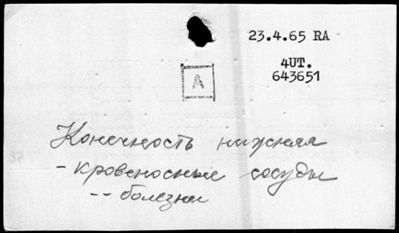 23.4.65 RA
4UT.
643651
A
Конечность нижняя
- кровеносные сосуды
-- болезни